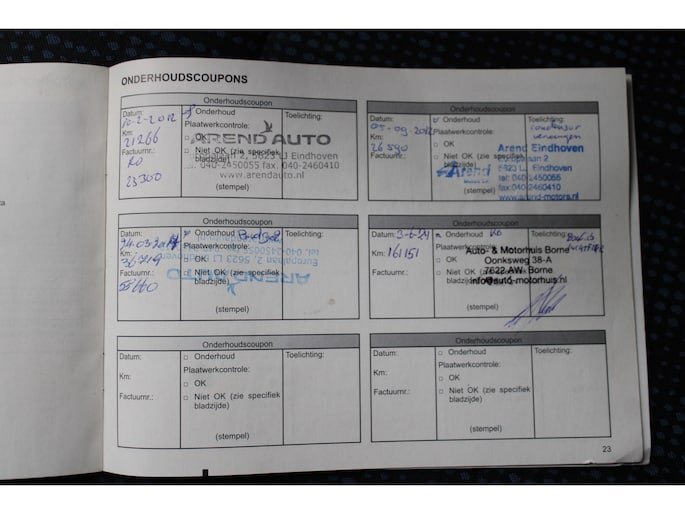 ONDERHOUDSCOUPONS
Onderhoudscoupon
Datum:
10-2-2012
Km:
21266
Factuurnr.:
23300
Onderhoud
Plaatwerkcontrole:
OK
Niet OK (zie specifiek
bladzijde)
Toelichting:
AREND AUTO
5623 LJ Eindhoven
040-2450055 fax. 040-2460410
www.arendauto.nl
(stempel)
Onderhoudscoupon
Datum:
05-09-2012
Km:
26590
Factuurnr.:
Onderhoud
Plaatwerkcontrole:
OK
Niet OK (zie specifiek
bladzijde)
Toelichting:
Arend Eindhoven
5623 LJ Eindhoven
tel: 040-2450055
fax: 040-2460410
www.arend-motors.nl
Arend
(stempel)
Onderhoudscoupon
Datum:
Km:
Factuurnr.:
Onderhoud
Plaatwerkcontrole:
OK
Niet OK (zie specifiek
bladzijde)
Toelichting:
Europalaan 2, 5623 LJ Eindhoven
AREND AUTO
(stempel)
Onderhoudscoupon
Datum:
3-6-24
Km:
161151
Factuurnr.:
Onderhoud
Plaatwerkcontrole:
OK
Niet OK (zie specifiek
bladzijde)
Toelichting:
Auto- & Motorhuis Borne
Oonksweg 38-A
7622 AW Borne
info@auto-motorhuis.nl
(stempel)
Onderhoudscoupon
Datum:
Km:
Factuurnr.:
Onderhoud
Plaatwerkcontrole:
OK
Niet OK (zie specifiek
bladzijde)
Toelichting:
(stempel)
Onderhoudscoupon
Datum:
Km:
Factuurnr.:
Onderhoud
Plaatwerkcontrole:
OK
Niet OK (zie specifiek
bladzijde)
Toelichting:
(stempel)
23